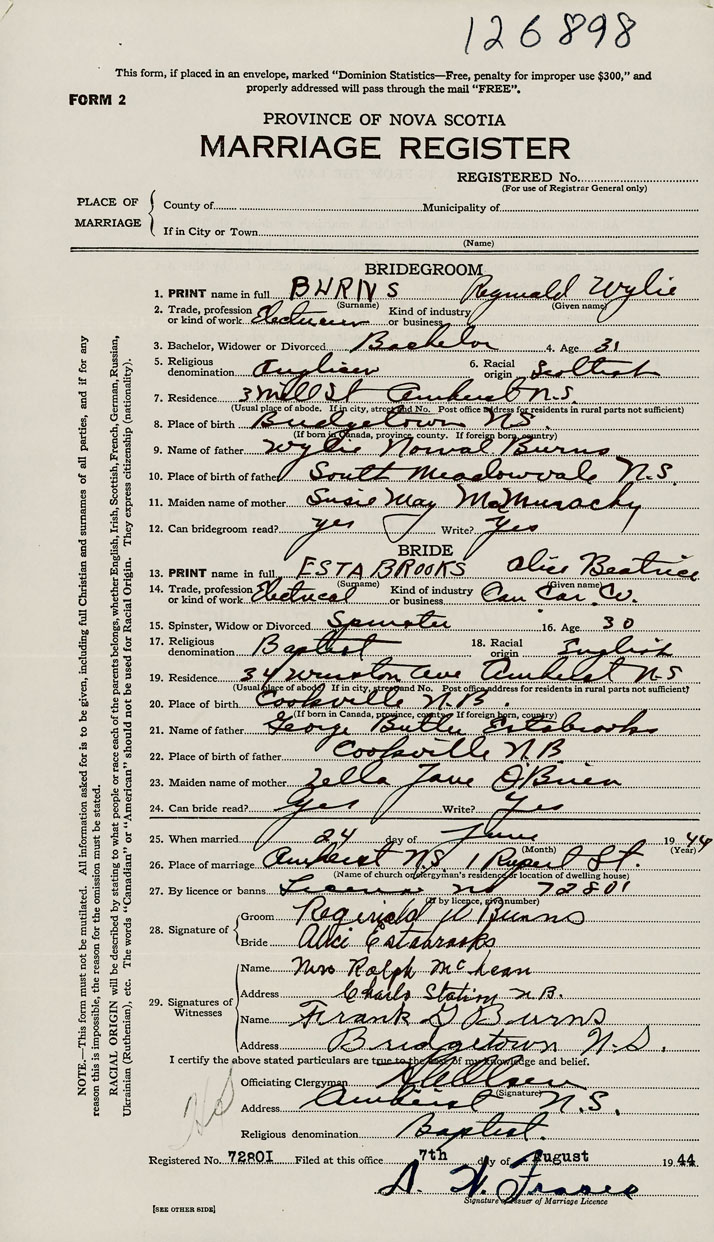 126898
This form, if placed in an envelope, marked "Dominion Statistics—Free, penalty for improper use $300," and
properly addressed will pass through the mail "FREE".
FORM 2
PROVINCE OF NOVA SCOTIA
MARRIAGE REGISTER
REGISTERED No.
(For use of Registrar General only)
PLACE OF MARRIAGE
County of Municipality of
If in City or Town
(Name)
BRIDEGROOM
1. PRINT name in full BURNS Reginald Wylie
(Surname) (Given name)
2. Trade, profession or kind of work Electrician Kind of industry or business
3. Bachelor, Widower or Divorced Bachelor 4. Age 31
5. Religious denomination Anglican 6. Racial origin Scottish
7. Residence 3 Mill St Amherst N.S.
(Usual place of abode. If in city, street and No. Post office address for residents in rural parts not sufficient)
8. Place of birth Bridgetown N.S.
(If born in Canada, province, county. If foreign born, country)
9. Name of father Wylie Norval Burns
10. Place of birth of father South Meadowvale N.S.
11. Maiden name of mother Susie May McMurachy
12. Can bridegroom read? yes Write? yes
BRIDE
13. PRINT name in full ESTABROOKS Alice Beatrice
(Surname) (Given name)
14. Trade, profession or kind of work Electrical Kind of industry or business Can Car. Co.
15. Spinster, Widow or Divorced Spinster 16. Age 30
17. Religious denomination Baptist 18. Racial origin English
19. Residence 34 Winston Ave Amherst N.S
(Usual place of abode. If in city, street and No. Post office address for residents in rural parts not sufficient)
20. Place of birth Cookville N.B.
(If born in Canada, province, county. If foreign born, country)
21. Name of father George Butler Estabrooks
22. Place of birth of father Cookville N B
23. Maiden name of mother Zella Jane O'Brien
24. Can bride read? Yes Write? Yes
25. When married 24 day of June 1944
(Month) (Year)
26. Place of marriage Amherst N.S. 1 Rupert St.
(Name of church or clergyman's residence or location of dwelling house)
27. By licence or banns License no 72801
(If by licence, give number)
28. Signature of
Groom Reginald W Burns
Bride Alice Estabrooks
29. Signatures of Witnesses
Name Mrs Ralph McLean
Address Station N.B.
Name Frank G Burns
Address Bridgetown N.S.
I certify the above stated particulars are true to the best of my knowledge and belief.
Officiating Clergyman
(Signature)
Address Amherst N.S.
Religious denomination Baptist.
Registered No. 72801 Filed at this office 7th day of August 1944
Signature of Issuer of Marriage Licence
[SEE OTHER SIDE]
NOTE.—This form must not be mutilated. All information asked for is to be given, including full Christian and surnames of all parties, and if for any
reason this is impossible, the reason for the omission must be stated.
RACIAL ORIGIN will be described by stating to what people or race each of the parents belongs, whether English, Irish, Scottish, French, German, Russian,
Ukrainian (Ruthenian), etc. The words "Canadian" or "American" should not be used for Racial Origin. They express citizenship (nationality).